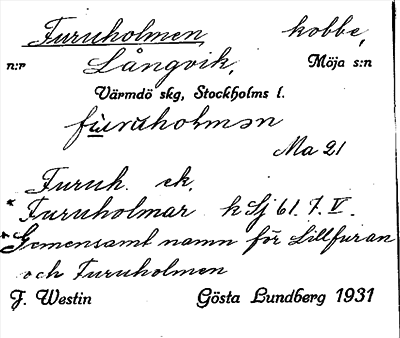 Furuholmen kobbe,
n:r Långvik, Möja s:n
Värmdö skg, Stockholms l.
fùruholmən
Ma 21
Furuh. ek.
* Furuholmar k Sj 61. 7. V.
* Gemensamt namn för Lillfuran
och Furuholmen
F. Westin Gösta Lundberg 1931